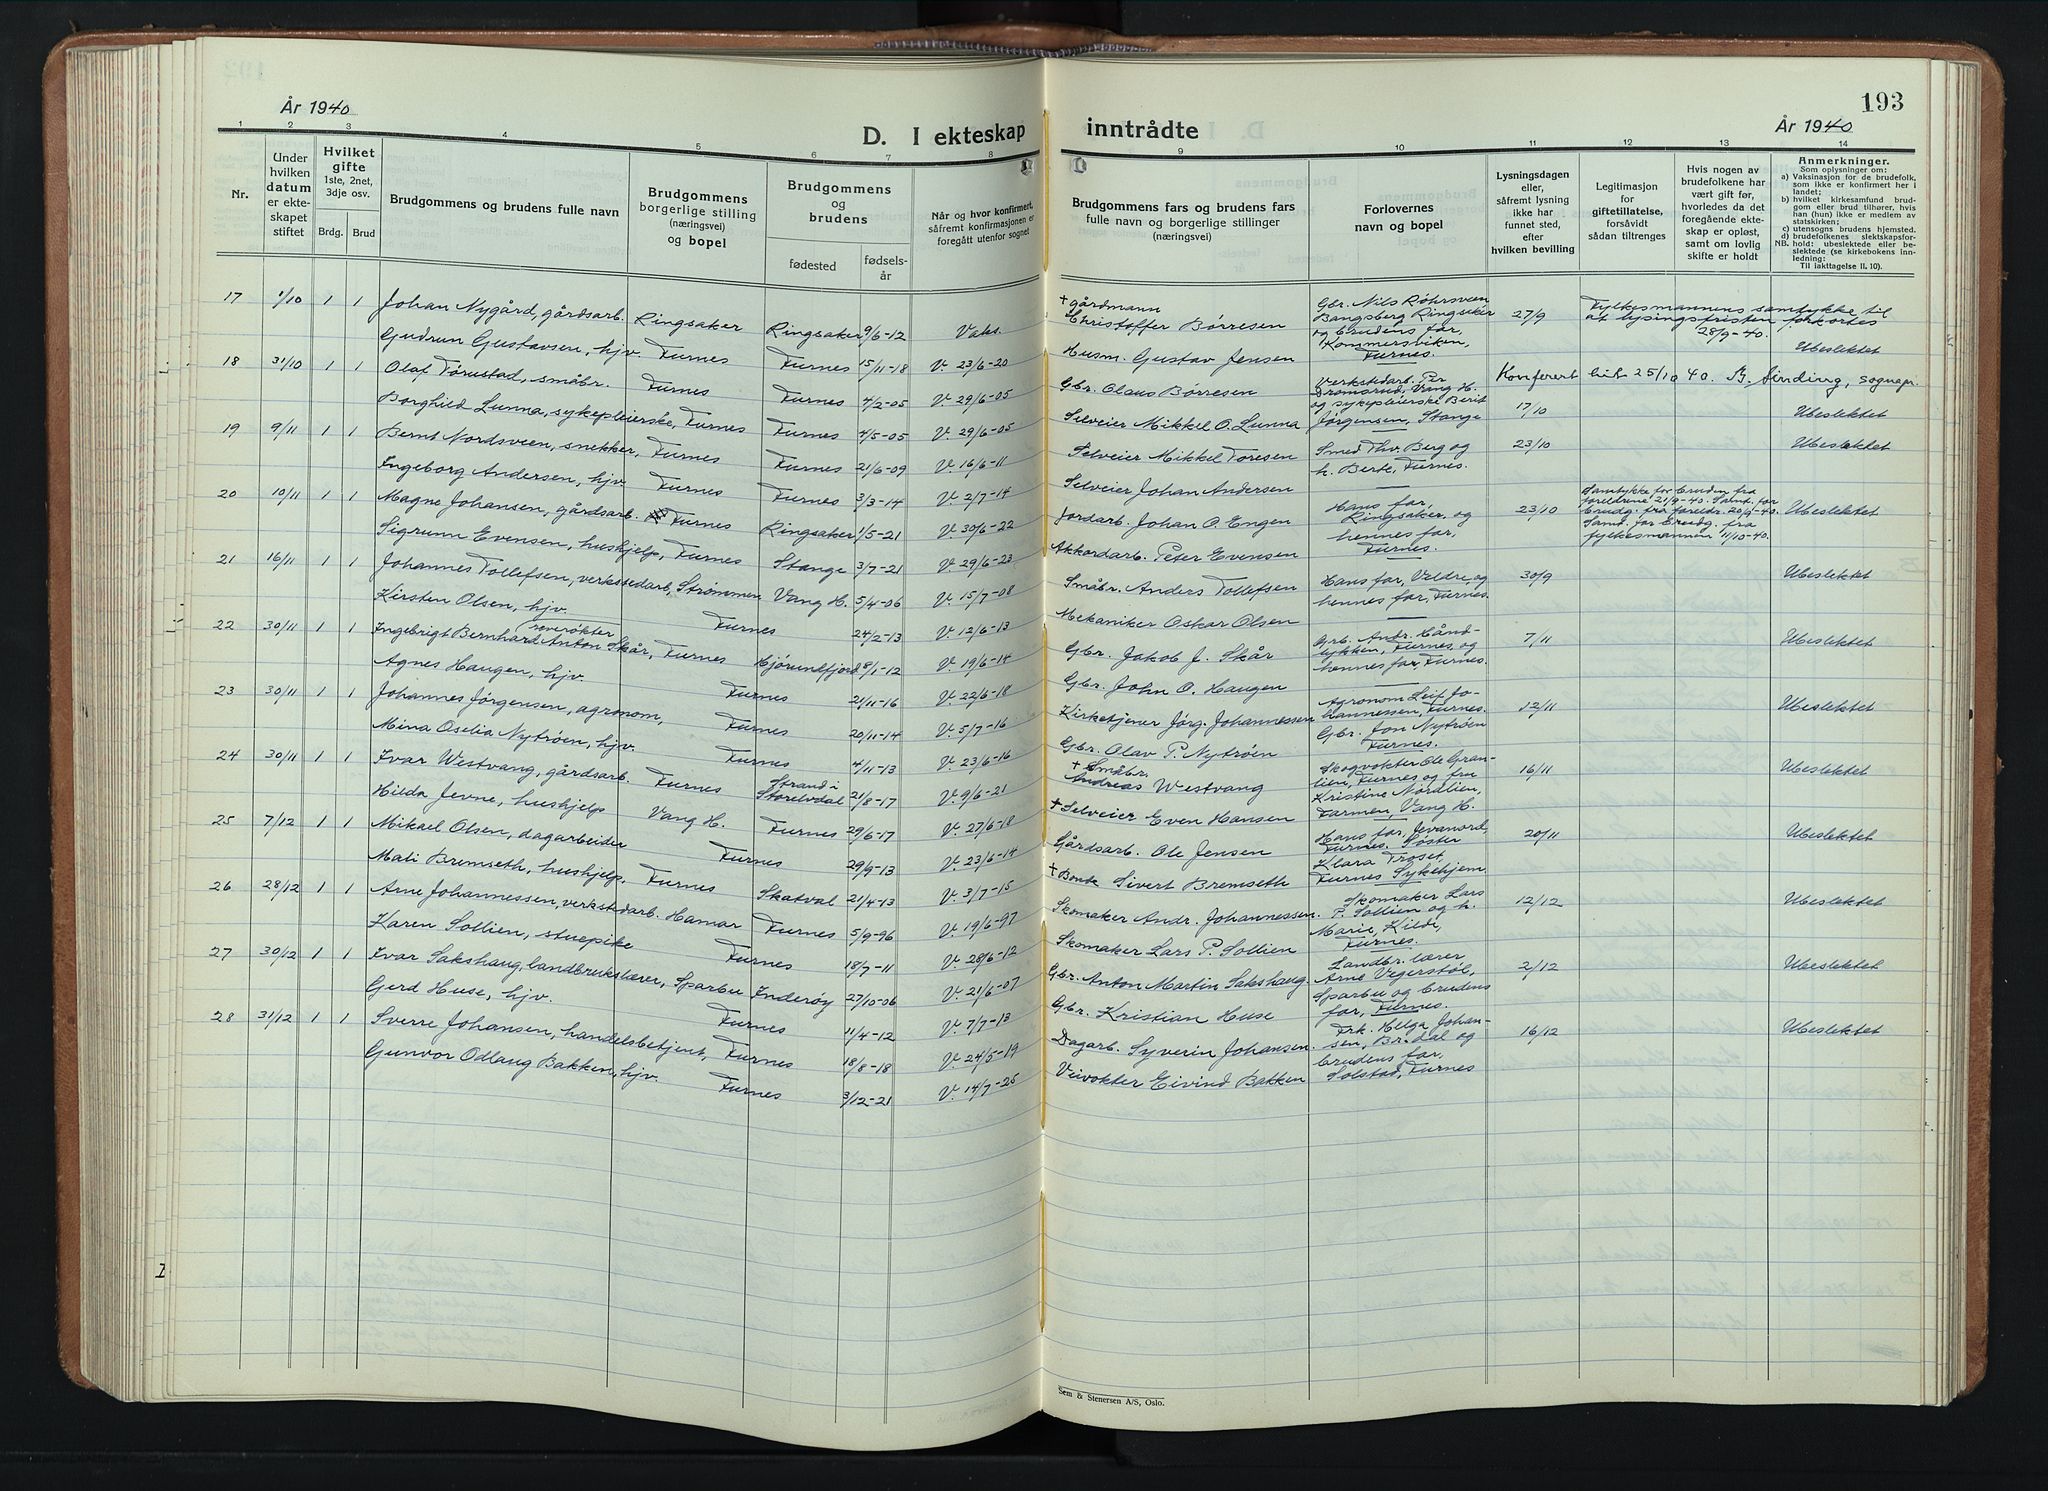 193
År 1940
År 1940
D. I ekteskap inntrådte
1 2 3 4 5 6 7 8 9 10 11 12 13 14
Nr.
Under hvilken datum er ekteskapet stiftet
Hvilket gifte 1ste, 2net, 3dje osv.
Brdg. Brud
Brudgommens og brudens fulle navn
Brudgommens borgerlige stilling (næringsvei) og bopel
Brudgommens og brudens
fødested
fødselsår
Når og hvor konfirmert, såfremt konfirmasjonen er foregått utenfor sognet
Brudgommens fars og brudens fars fulle navn og borgerlige stillinger (næringsvei)
Forlovernes navn og bopel
Lysningsdagen eller, såfremt lysning ikke har funnet sted, efter hvilken bevilling
Legitimasjon for giftetillatelse, forsåvidt sådan tiltrenges
Hvis nogen av brudefolkene har vært gift før, hvorledes da det foregående ekteskap er opløst, samt om lovlig skifte er holdt
Anmerkninger.
Som oplysninger om:
a) Vaksinasjon for de brudefolk, som ikke er konfirmert her i landet;
b) hvilket kirkesamfund brudgom eller brud tilhører, hvis han (hun) ikke er medlem av statskirken;
c) utensogns brudens hjemsted.
d) brudefolkenes slektskapsforhold: ubeslektede eller beslektede (se kirkebokens innledning:
NB.
Til iakttagelse II, 10).
17 1/10 1 1 Johan Nygård, gårdsarb. Ringsaker Ringsaker 9/6-12 Vaks. + gårdmann Christoffer Børresen Gbr. Nils Røhrsveen Bangsberg Ringsaker og brudens far, Kommersviken, Furnes. 27/9 Fylkesmannens samtykke til at lysingsfristen forkortes 28/9-40. Ubeslektet
Gudrun Gustavsen, hjv. Furnes Furnes 15/11-18 V. 23/6-20 Husm. Gustav Jensen
18 31/10 1 1 Olaf Tørustad, småbr. Furnes Furnes 4/2-05 V. 29/6-05 Gbr. Olaus Børresen Verkstedarb. Per Dromsrud, Vang H. og sykepleierske Berit Jørgensen, Stange 17/10 Ubeslektet
Konferert hit 25/10 40. Sinding, sognepr.
Borghild Lunna, sykepleierske, Furnes Furnes 4/5-05 V. 29/6-05 Selveier Mikkel O. Lunna
19 9/11 1 1 Bernt Nordsveen, snekker, Furnes Furnes 21/6-09 V. 16/6-11 Selveier Mikkel Toresen Smed Thv. Berg og h. Berte, Furnes. 23/10 Ubeslektet
Ingeborg Andersen, hjv. Furnes Furnes 3/3-14 V. 2/7-14 Selveier Johan Andersen
20 10/11 1 1 Magne Johansen, gårdsarb. Furnes Ringsaker 1/5-21 V. 30/6-22 Jordarb. Johan O. Engen Hans far, Ringsaker, og hennes far, Furnes. 23/10 Samtykke for bruden fra foreldrene 21/9-40. Samt. for brudg. fra foreldr. 20/9-40. Samt. for brudg. fra fylkesmannen 11/10-40. Ubeslektet
Sigrunn Evensen, hushjelp, Furnes Stange 3/7-21 V. 29/6-23 Akkordarb. Peter Evensen
21 16/11 1 1 Johannes Tollefsen, verkstedarb., Strømmen Vang H. 5/4-06 V. 15/7-08 Småbr. Anders Tollefsen Hans far, Veldre, og hennes far, Furnes. 30/9 Ubeslektet
Kirsten Olsen, hjv. Furnes 24/2-13 V. 12/6-13 Mekaniker Oskar Olsen
22 30/11 1 1 Ingebrigt Bernhard Anton Skår, røverøkter Furnes Hjørundfjord 8/1-12 V. 19/6-14 Gbr. Jakob J. Skår Grb. Andr. Håndlykken, Furnes, og hennes far, Furnes. 7/11 Ubeslektet
Agnes Haugen, hjv. Furnes 21/11-16 V. 22/6-18 Gbr. John O. Haugen
23 30/11 1 1 Johannes Jørgensen, agronom, Furnes 20/11-14 V. 5/7-16 Kirketjener Jørg. Johannessen Agronom Leif Johannessen, Furnes. Gbr. Jon Nytrøen Furnes. 12/11 Ubeslektet
Mina Oselia Nytrøen, hjv. Furnes 4/11-13 V. 23/6-16 Gbr. Olav P. Nytrøen
24 30/11 1 1 Ivar Westvang, gårdsarb. Furnes Strand i Storelvdal 21/8-17 V. 9/6-21 + Småbr. Andreas Westvang Skogvokter Ole Granlien, Furnes og fru Kristine Nordlien, Farmen, Vang H. 16/11 Ubeslektet
Hilda Jevne, hushjelp Vang H. Furnes 29/6-17 V. 27/6-18 + Selveier Even Hansen
25 7/12 1 1 Mikael Olsen, dagarbeider Furnes 29/9-13 V. 23/6-14 Gårdsarb. Ole Jensen Hans far, Jevanord, Furnes. Søster Klara Troset Furnes Sykehjem 20/11 Ubeslektet
Mali Bremseth, hushjelp, Furnes Skatval 21/4-13 V. 3/7-15 + Bonde Sivert Bremseth
26 28/12 1 1 Arne Johannessen, verkstedarb. Hamar Furnes 5/9-96 V. 19/6-97 Skomaker Andr. Johannessen. Skomaker Lars P. Sollien og h. Marie, Kilde, Furnes. 12/12 Ubeslektet
Karen Sollien, stuepike Furnes 18/7-11 V. 28/6-12 Skomaker Lars P. Sollien
27 30/12 1 1 Ivar Sakshaug, landbrukslærer, Sparbu Inderøy 27/10-06 V. 21/6-07 Gbr. Anton Martin Sakshaug. Landbr. lærer Arne Vegerstøl, Sparbu og brudens far, Furnes. 2/12 Ubeslektet
Gerd Huse, hjv. Furnes 11/4-12 V. 7/7-13 Gbr. Kristian Huse
28 31/12 1 1 Sverre Johansen, handelsbetjent, Furnes 18/8-18 V. 24/5-19 Dagarb. Syverin Johansen. Frk. Helga Johansen, Br.dal og brudens far, Solstad, Furnes 16/12 Ubeslektet
Gunvor Odlaug Bakken, hjv. Furnes 3/12-21 V. 14/7-25 Veivokter Eivind Bakken
Sem & Stenersen A/S, Oslo.